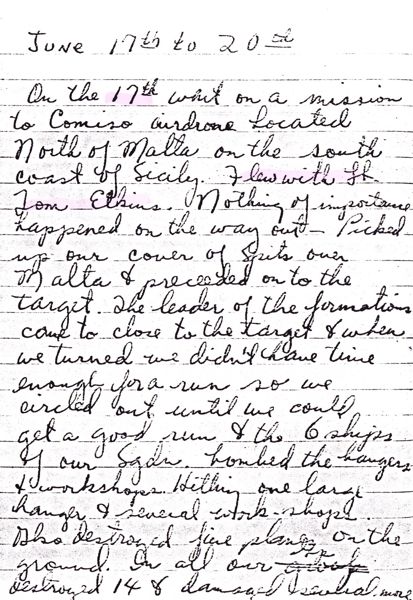 June 17th to 20th
On the 17th whent on a mission
to Comiso airdrone located
North of Malta on the south
coast of Sicily. Flew with Lt
Tom Elkins. Nothing of importance
happened on the way out - Picked
up our cover of Spits over
Malta & preceeded on to the
target. The leader of the formations
came to close to the target & when
we turned we didn't have time
enough for a run so we
circled out until we could
get a good run & the 6 ships
of our Sqdn. bombed the hangers
& workshops. Hitting one large
hanger & several work-shops.
Also destroyed five planes on the
ground. In all our Gp
destroyed 14 & damaged several more